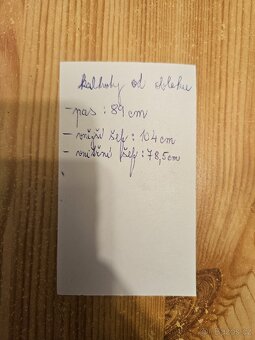 Kalhoty od obleku
- pas : 89 cm
- vnější šef : 104 cm
- vnitřní šef : 78,5 cm